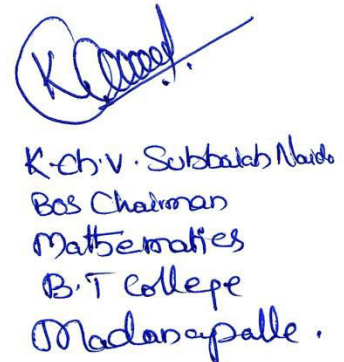 K.Ch.V. Subbaiah Naido
BOS Chairman
Mathematics
B.T College
Madanapalle.